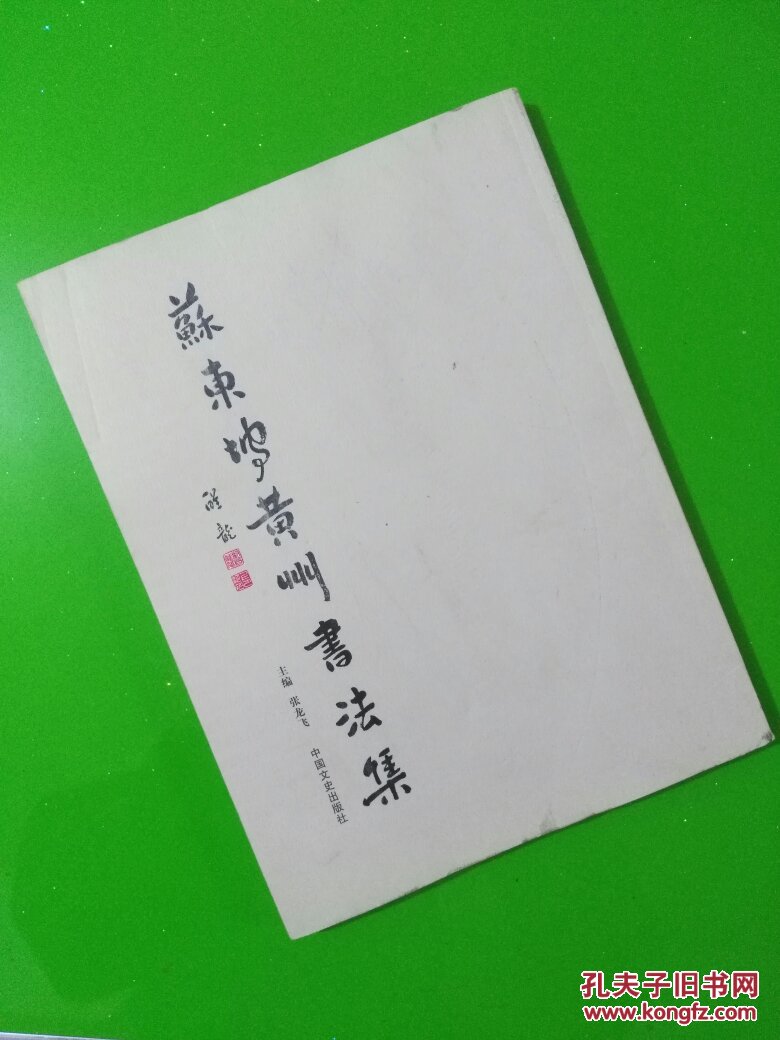 蘇東坡黄州書法集
醒龍
主编 张龙飞 中国文史出版社
孔夫子旧书网
www.kongfz.com